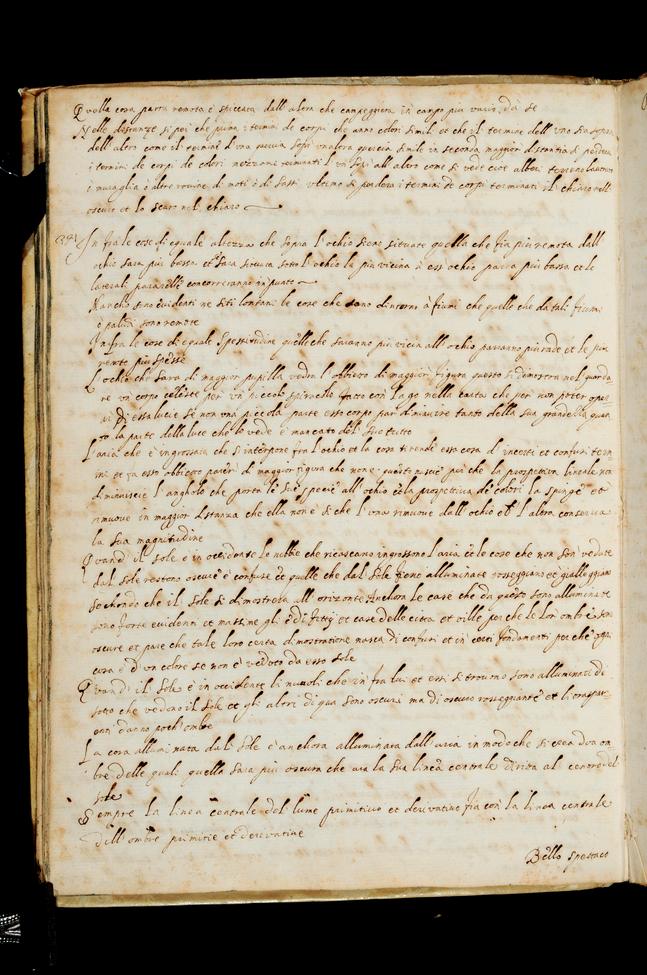 Quella cosa parra remota e spiccata dall' altra che campeggiera in campo piu vario da se
Nelle distanze si perdon prima i termini de corpi che anno colori simili et che il termine dell' uno sia sopra
dell' altro come il termine d' una quercia sopra un altra quercia simile in seconda maggior distantia si perdera
i termini de corpi de colori mezzani terminati l' un sopra all' altro come si vede cioè alberi terreno lavorato
ò muraglia ò altre rovine di moti ò di sassi ultimo si perdera i termini de corpi terminati il chiaro nell
oscuro et lo scuro nel chiaro
In fra le cose di equale altezza che sopra l' ochio sieno situate quella che fia piu remota dall'
ochio sara piu bassa et se sara situata sotto l' ochio la piu vicina à esso ochio parra piu bassa et le
laterali pararelle concorreranno in punto
Mancho sono evidenti ne siti lontani le cose che sono dintorno à fiumi che quelle che da tali fiumi
e paludi son remote
Infra le cose di equale spessitudine quelle che saranno piu vicin all' ochio parranno piu rade et le piu
remote piu spesse
L' ochio che sara di maggior pupilla vedra l' obbieto di maggior figura questo si dimostra nel guarda
re un corpo celeste per un piccolo spiracolo fatto con l' ago nella carta che per non poter opra
re di essa luce se non una piccola parte esso corpo par diminuire tanto della sua grandezza quan
to la parte della luce che lo vede è mancata dal suo tutto
L' aria che è ingrossata che s' interpone fra l' ochio et la cosa ci rende essa cosa d' incerti et confusi term
ini et fa esso obbieto parere di maggior figura che non è questo nascie perche la prospettiva lineale non
diminuiscie l' angholo che porta le sue spezie all' ochio et la prospettiva de colori la spinge et
rimuove in maggior distanza che ella non è si che l' una rimuove dall' ochio et l' altra conserva
la sua magnitudine
Quando il sole è in occidente le nebbie che ricascano ingrossono l' aria et le cose che non son vedute
dal sole restono oscure è confuse et quelle che dal sole fieno alluminate rosseggiano et gialleggiano
sechondo che il sole si dimostrera all' orizonte Anchora le case che da questo sono alluminate
sono forte evidenti et massime gli edifitij et case delle citta et ville perche le lor ombre sono
oscure et pare che tale loro certa dimostratione nasca di confusi et incerti fondamenti perche ogni
cosa è d' un colore se non è veduta da esso sole
Quando il sole è in occidente li nuvoli che in fra lui et essi si trovano sono alluminati di
sotto che vedono il sole et gli altri di qua sono oscuri ma di oscuro rosseggiante et li traspar
enti anno poch' ombre
La cosa alluminata dal sole è anchora alluminata dall' aria in modo che si crea dua om
bre delle quali quella sara piu oscura che ara la sua linea centrale diritta al centro del
sole
Sempre la linea centrale del lume primitivo et derivative fia con la linea centrale
dell' ombre primitie et derivative
Bello spetaco